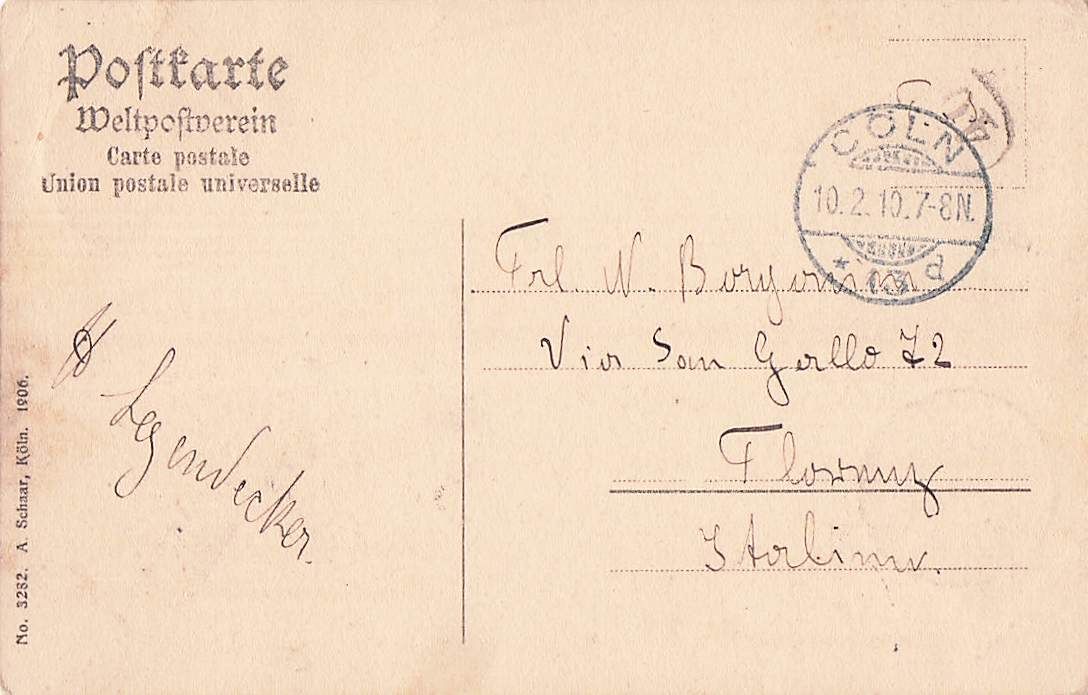 Postkarte
Weltpostverein
Carte postale
Union postale universelle
CÖLN
10.2.10.7-8N.
* 1 d
Frl. N.
Via San Gallo 72
Florenz
Italien.
No. 3282. A. Schaar, Köln. 1906.